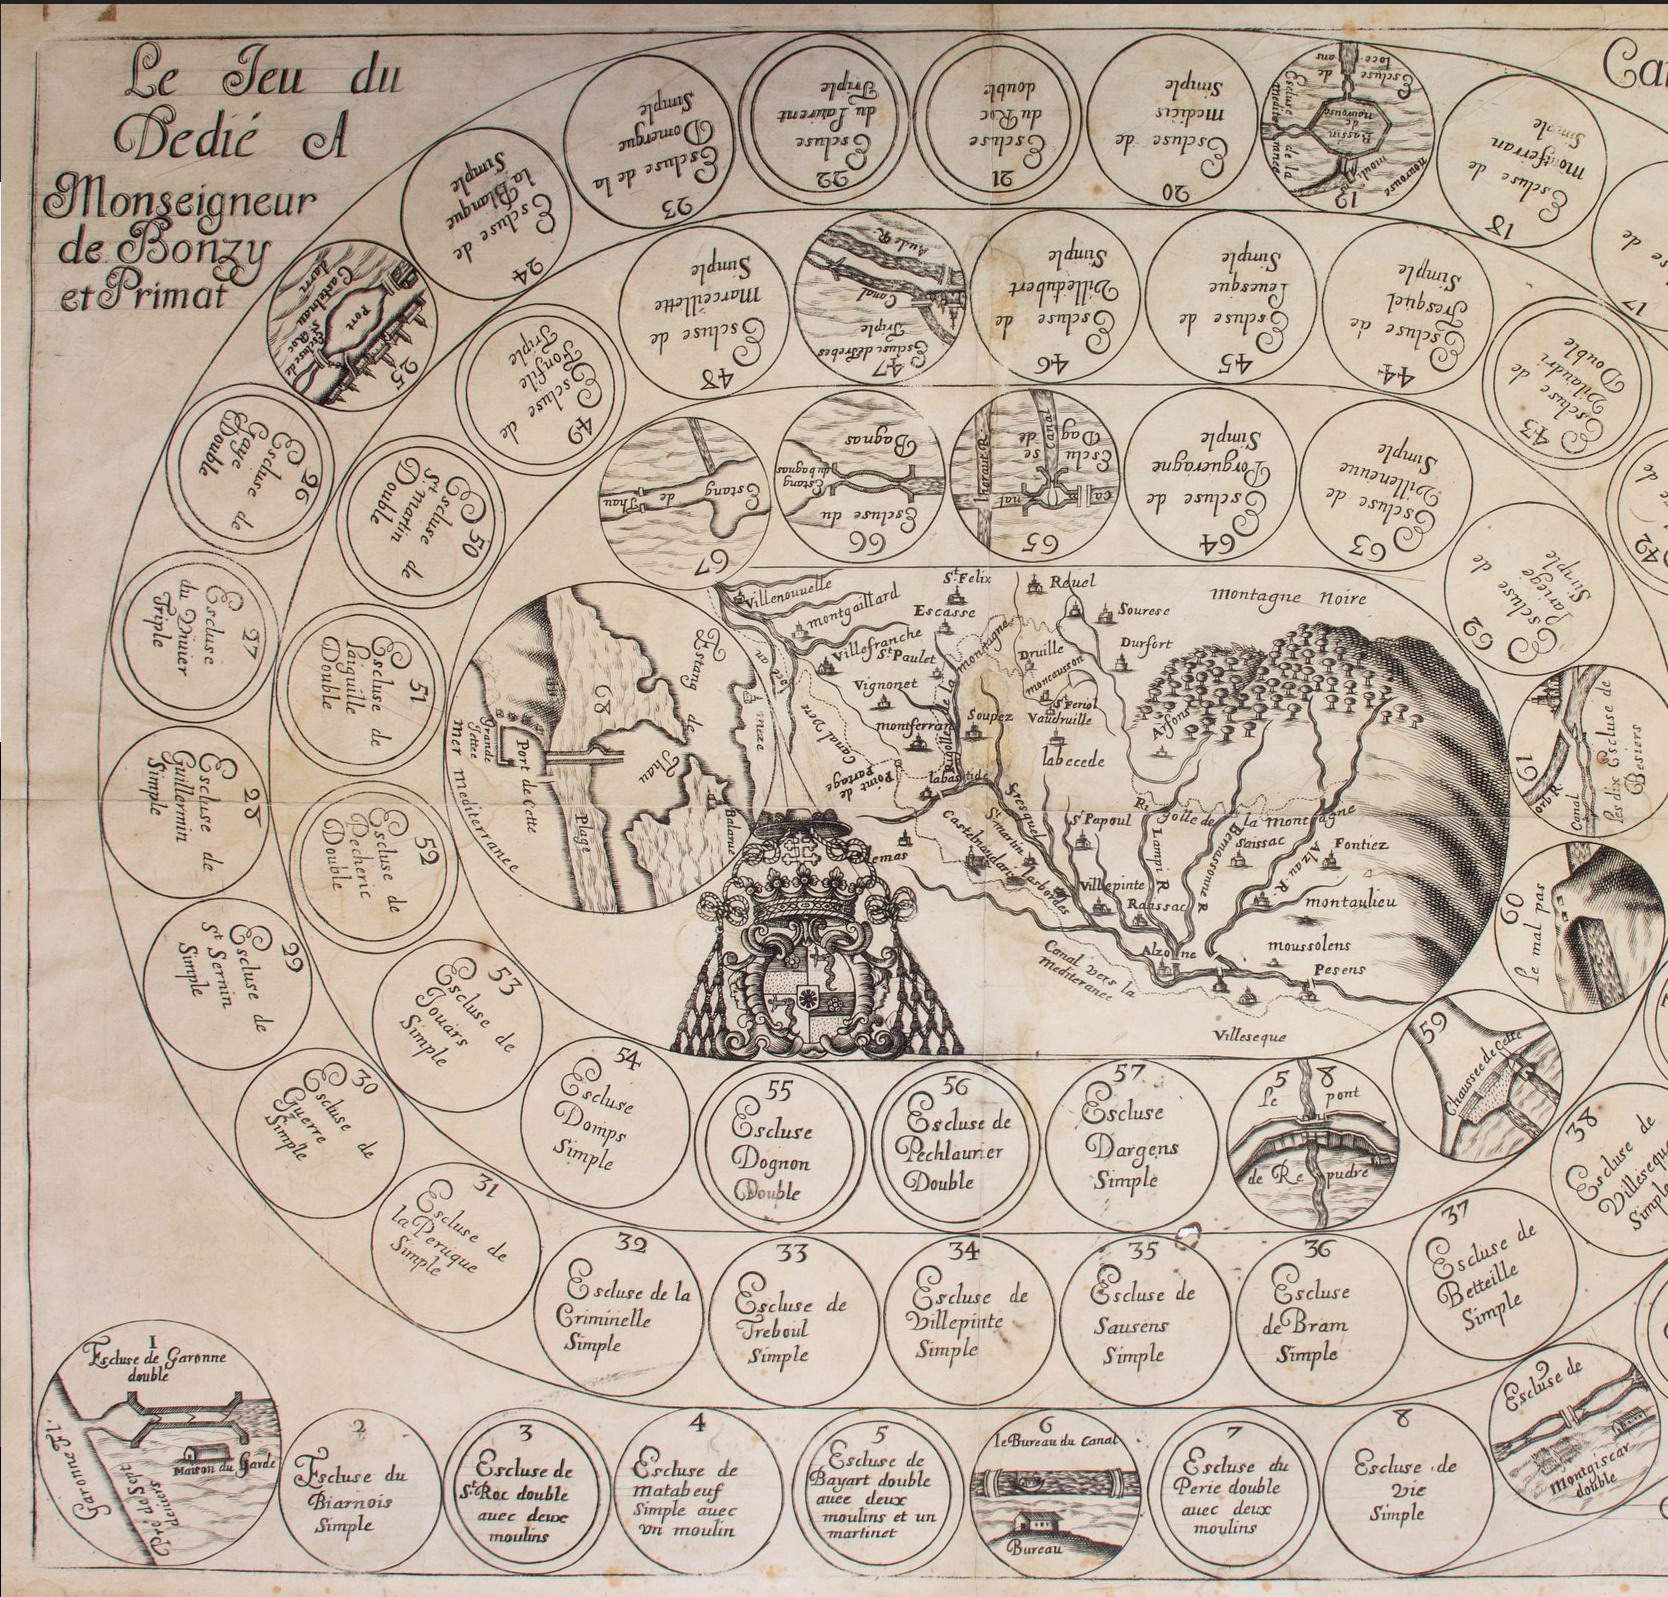 Le Jeu du
Dedié A
Monseigneur
de Bonzy
et Primat
Ca
1
Escluse de Garonne
double
Garonne Fl.
Pré de Sept
deniers
Maison du Garde
2
Escluse du
Biarnois
Simple
3
Escluse de
St Roc double
auec deux
moulins
4
Escluse de
matabeuf
Simple auec
vn moulin
5
Escluse de
Bayart double
auec deux
moulins et un
martinet
6
le Bureau du Canal
Bureau
7
Escluse du
Perie double
auec deux
moulins
8
Escluse de
vie
Simple
Escluse de
Montgiscar
double
17
18
Escluse de
montferran
Simple
19
Bassin
de
nourouse
moulins
nourouse
Escluse de la
mediteranee
Escluse de
loce ans
20
Escluse de
medicis
Simple
21
Escluse
du Roc
double
22
Escluse
du Laurent
Triple
23
Escluse de la
Domergue
Simple
24
Escluse de
la Blanque
Simple
25
Port
Castelnau
darri
Escluse de
St Roc
26
Escluse de
Gaye
Double
27
Escluse
du Viuier
Triple
28
Escluse de
Guillermin
Simple
29
Escluse de
St Sernin
Simple
30
Escluse de
Guerre
Simple
31
Escluse de
la Peruque
Simple
32
Escluse de la
Criminelle
Simple
33
Escluse de
Treboul
Simple
34
Escluse de
Villepinte
Simple
35
Escluse de
Sausens
Simple
36
Escluse
de Bram
Simple
37
Escluse de
Betteille
Simple
38
Escluse de
Villeseque
Simple
42
43
Escluse de
Vilaudri
Double
44
Escluse de
Fresquel
Simple
45
Escluse de
Leuesque
Simple
46
Escluse de
Villedubert
Simple
47
Escluse de Trebes
Triple
Canal
Aude R.
48
Escluse de
Marceillette
Simple
49
Escluse de
Fonfile
Triple
50
Escluse de
St martin
Double
51
Escluse de
laiguille
Double
52
Escluse de
Pecheric
Double
53
Escluse de
Jouars
Simple
54
Escluse
Domps
Simple
55
Escluse
Dognon
Double
56
Escluse de
Pechlaurier
Double
57
Escluse
Dargens
Simple
58
Le pont
de Re pudre
59
Chaussée de Cesse
60
le mal pas
61
Orb R.
Canal
les dix Escluse de
Besiers
62
Escluse de
Lariege
Simple
63
Escluse de
Villeneuue
Simple
64
Escluse de
Porgueragne
Simple
65
Esclu
se
de
Dag
Canal
ca
nal
herraut R.
66
Escluse du
Bagnas
Estang
du bagnas
67
Estang
de
Thau
68
Estang de
Thau
meze
Balaruc
Grande
Jettée
Port de Cette
Plage
mer mediterranée
Villenouuelle
montgaillard
Villefranche
St Paulet
Vignonet
montferran
St Felix
Escasse
Reuel
Sourese
Durfort
Druille
moncausson
St Feriol
Vaudruille
Soupez
labecede
labastide
Rigolle de la montagne
Canal Vers
Point de
Partage
montagne Noire
lesfons
Rigolle de la montagne
St Papoul
Fresquel
St Martin
Castelnaudarri
lasbordes
lemas
Villepinte
Raissac
Lampi R.
Bernassonne R.
Saissac
Alzau R.
Fontiez
montaulieu
moussolens
Alzonne
Pesens
Canal vers la
Mediteranee
Villeseque